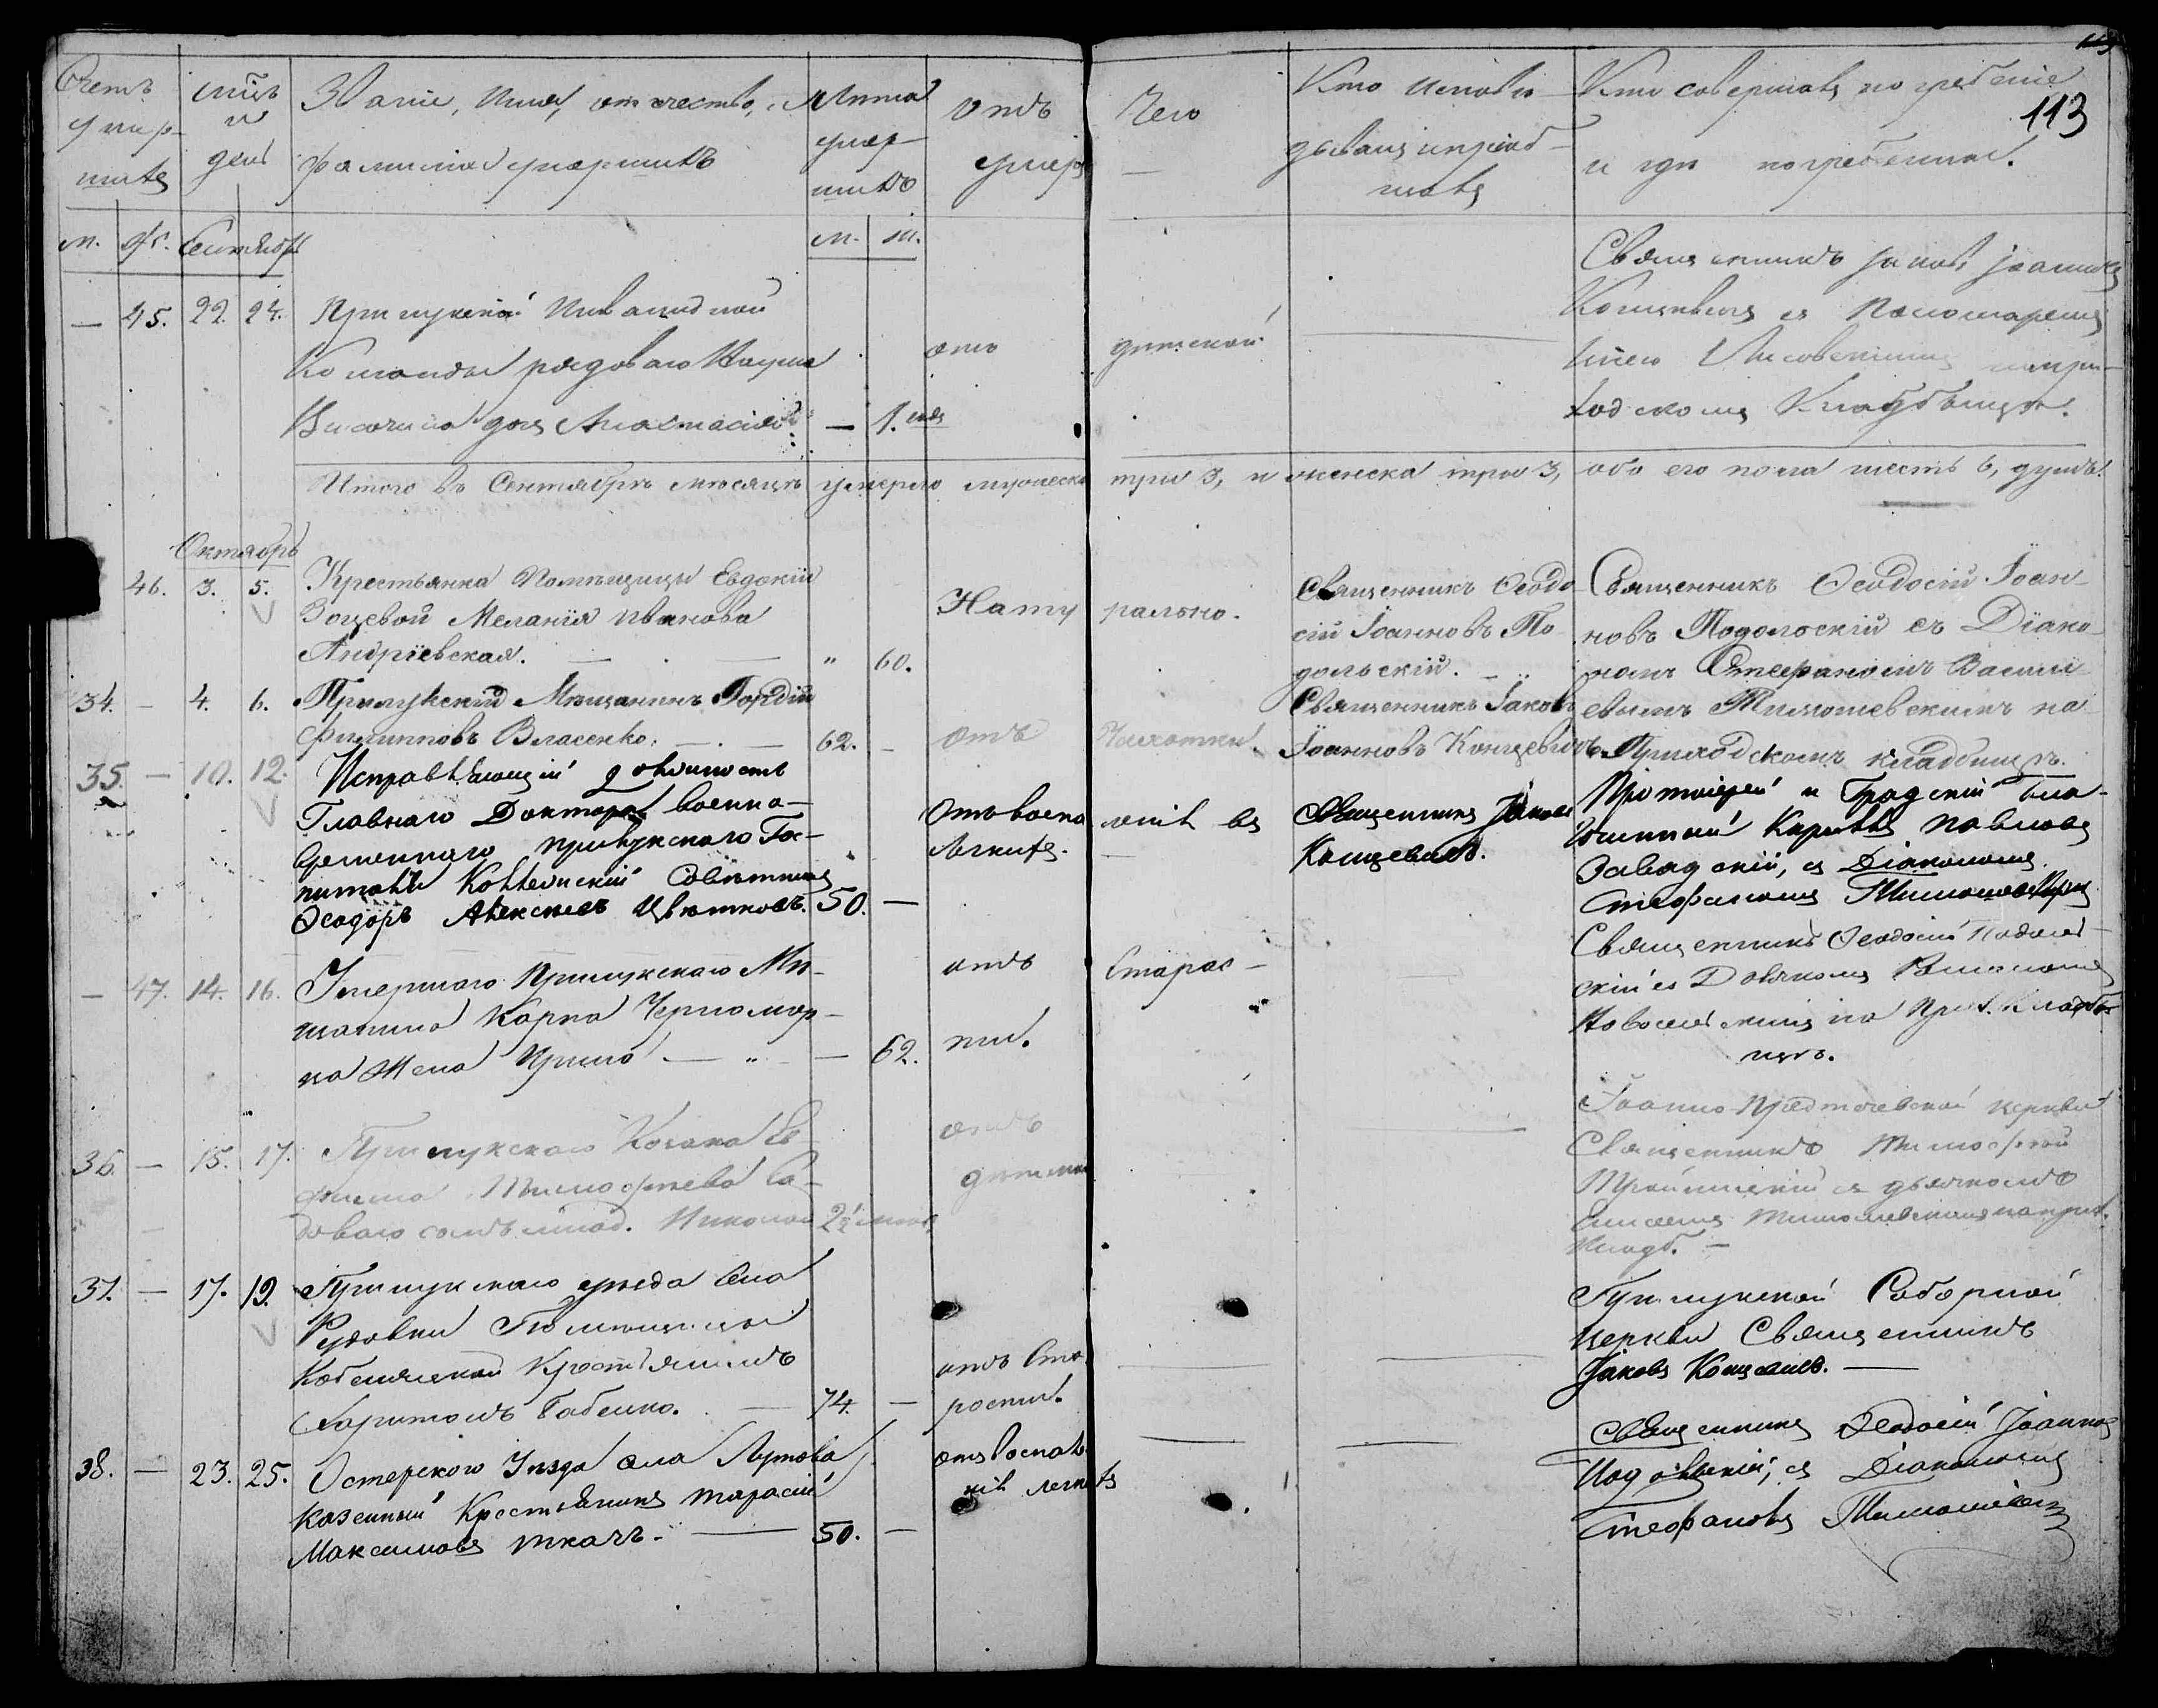 113
Счетъ умершихъ
мѣсяцъ и день
Званіе, Имя, отчество, и фамилія умершихъ
Лѣта умершихъ
Отъ Чего умеръ
Кто исповѣдывалъ и пріобщалъ
Кто совершалъ погребеніе и гдѣ погребены.
м. ж. Сентябрь
м. ж.
— 45. 22. 24. Прилуцкой Инвалидной
Команды рядоваго Наума
дочь Анастасія — 1.
отъ дѣтской
Священникъ Іаковъ Іоанновъ
Концевичъ съ Пономаремъ
Лисовскимъ на при-
ходскомъ Кладбищѣ.
Итого въ Сентябрѣ мѣсяцѣ умерло мужеска три 3, и женска три 3, обоего пола шесть 6, душъ.
Октябрь
46. 3. 5. Крестьянка Помѣщицы Евдокіи
Зоцевой Меланія Иванова
Андріевская. — " 60.
Натурально.
Священникъ Ѳеодо-
сій Іоанновъ По-
дольскій.
Священникъ Ѳеодосій Іоан-
новъ Подольскій съ Діако-
номъ Стефаномъ Василі-
евымъ Тимошевскимъ на
Приходскомъ кладбищѣ.
34. — 4. 6. Прилуцкій Мѣщанинъ Гордій
Филипповъ Власенко. — 62. —
Отъ Чахотки.
Священникъ Іаковъ
Іоанновъ Концевичъ
35. — 10. 12. Исправляющій должность
Главнаго Доктора Военно-
временнаго Прилукскаго Гос-
питаля Коллежскій Совѣтникъ
Ѳеодоръ Алексѣевъ Цвѣтковъ. 50. —
Отъ воспаленія въ
легкихъ.
Священникъ Іаковъ
Концевичъ.
Протоіерей и Градскій бла-
гочинный Кириллъ Павловъ
Завадскій, съ Діакономъ
Стефаномъ
— 47. 14. 16. Умершаго Прилукскаго Мѣ-
щанина Карпа Черномор-
ца Жена Ирина — " — 62.
отъ Старос-
ти.
Священникъ Ѳеодосій Подоль-
скій съ
на Прих. Кладби-
щѣ.
36. — 15. 17. Прилукскаго Козака Еѳ-
фима Тимофѣева Са-
доваго сынъ млад. Николай 2½
отъ
Іоанно-Предтечевской церкви
Священникъ Тимофѣй
Троицкій съ дьячкомъ
на прих.
Кладб. —
37. — 17. 19. Прилукскаго уѣзда Села
Рудовки Помѣщицы
Крестьянинъ
Харитонъ Бабенко. — 74. —
отъ Ста-
рости.
Прилукской Соборной
Церкви Священникъ
Іаковъ Концевичъ. —
38. — 23. 25. Остерского Уѣзда села
казенный Крестьянинъ Тарасій
Максимовъ Ткачъ. — 50. —
отъ воспале-
нія легкихъ
Священникъ Ѳеодосій Іоанновъ
Подольскій, съ Діакономъ
Стефановъ